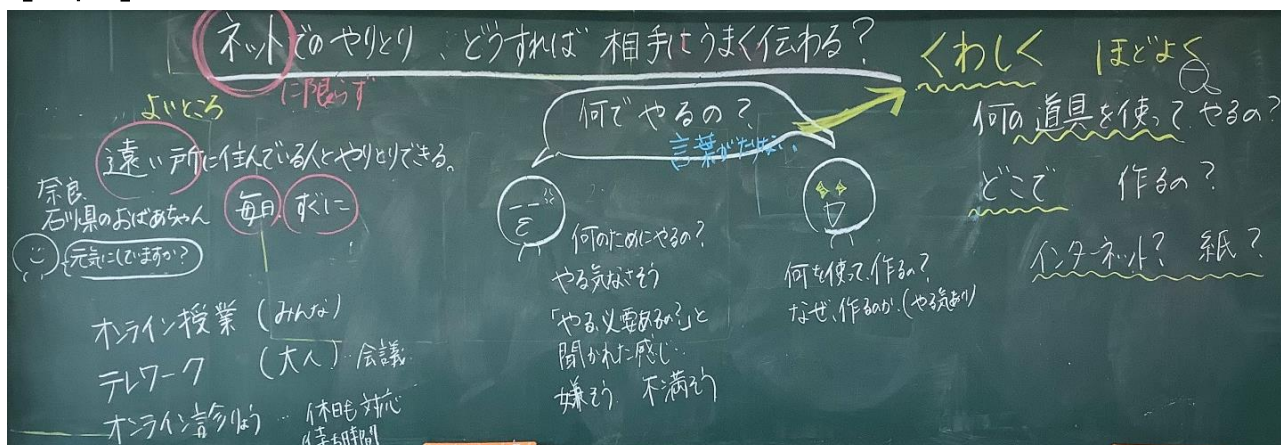 ネットでのやりとり、どうすれば相手にうまく伝わる?
に限らず
よいところ
遠い所に住んでいる人とやりとりできる。
奈良、
石川県のおばあちゃん
毎日 すぐに
元気にしていますか?
オンライン授業 (みんな)
テレワーク (大人) 会議
オンライン診りょう … 休日も対応
待ち時間
何でやるの?
言葉がたりない
何のためにやるの?
やる気なさそう
「やる必要あるの?」と
聞かれた感じ…
嫌そう 不満そう
何を使って、作るの?
なぜ、作るのか。(やる気あり)
くわしく ほどよく
何の道具を使って、やるの?
どこで 作るの?
インターネット? 紙?